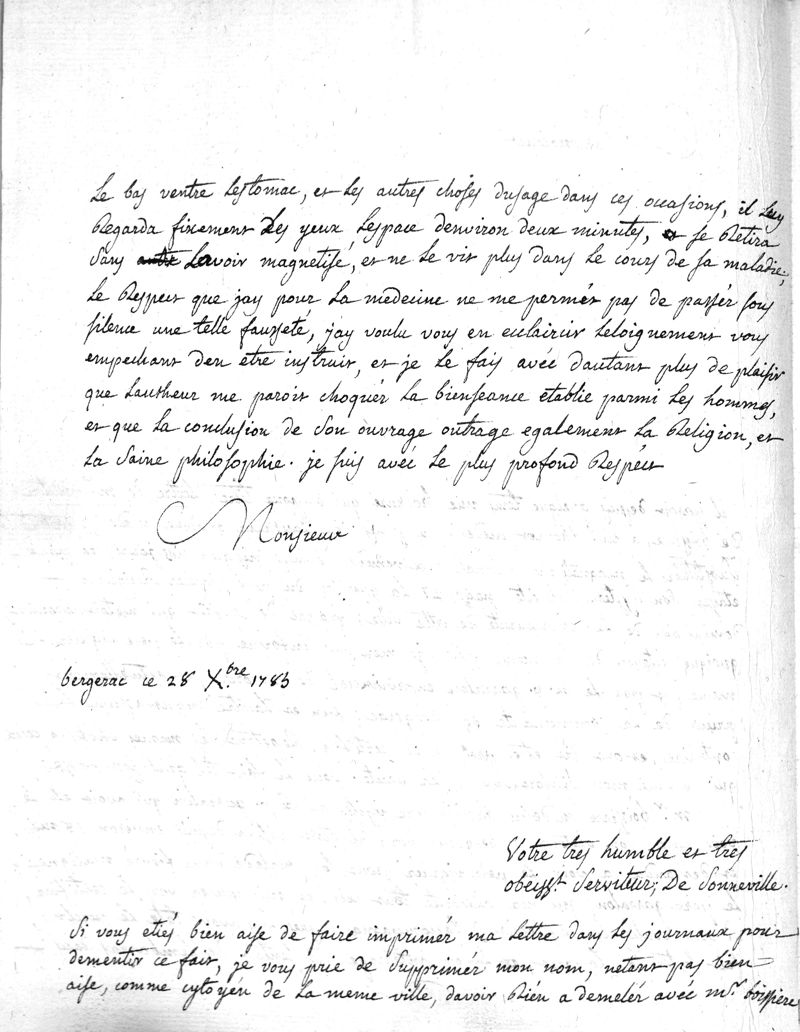 Le bas ventre Lestomac, et Les autres choses dusage dans ces occasions, il Luy
Regarda fixement Les yeux Lespace denviron deux minutes, et se Retira
sans Lavoir magnetisé, et ne Le vit plus dans Le cours de sa maladie;
Le Respect que jay pour La medecine ne me permèt pas de passér sous
silence une telle fausseté, jay voulu vous en eclaircir Leloignement vous
empechant den etre instruit, et je Le fais avéc dautant plus de plaisir
que Lautheur me paroit choquér La bienseance établie parmi Les hommes,
et que La conclusion de son ouvrage outrage egalement La Religion, et
La saine philosophie. je suis avéc Le plus profond Respéct
Monsieur
bergerac ce 28 Xbre. 1785
Votre tres humble et tres
obéisst. serviteur; De Sonneville.
Si vous etiés bien aise de faire imprimér ma Lettre dans Les journaux pour
dementir ce fait, je vous prie de supprimér mon nom, netant pas bien
aise, comme cytoyen de La meme ville, davoir Rién a demelér avéc mr. boissiere